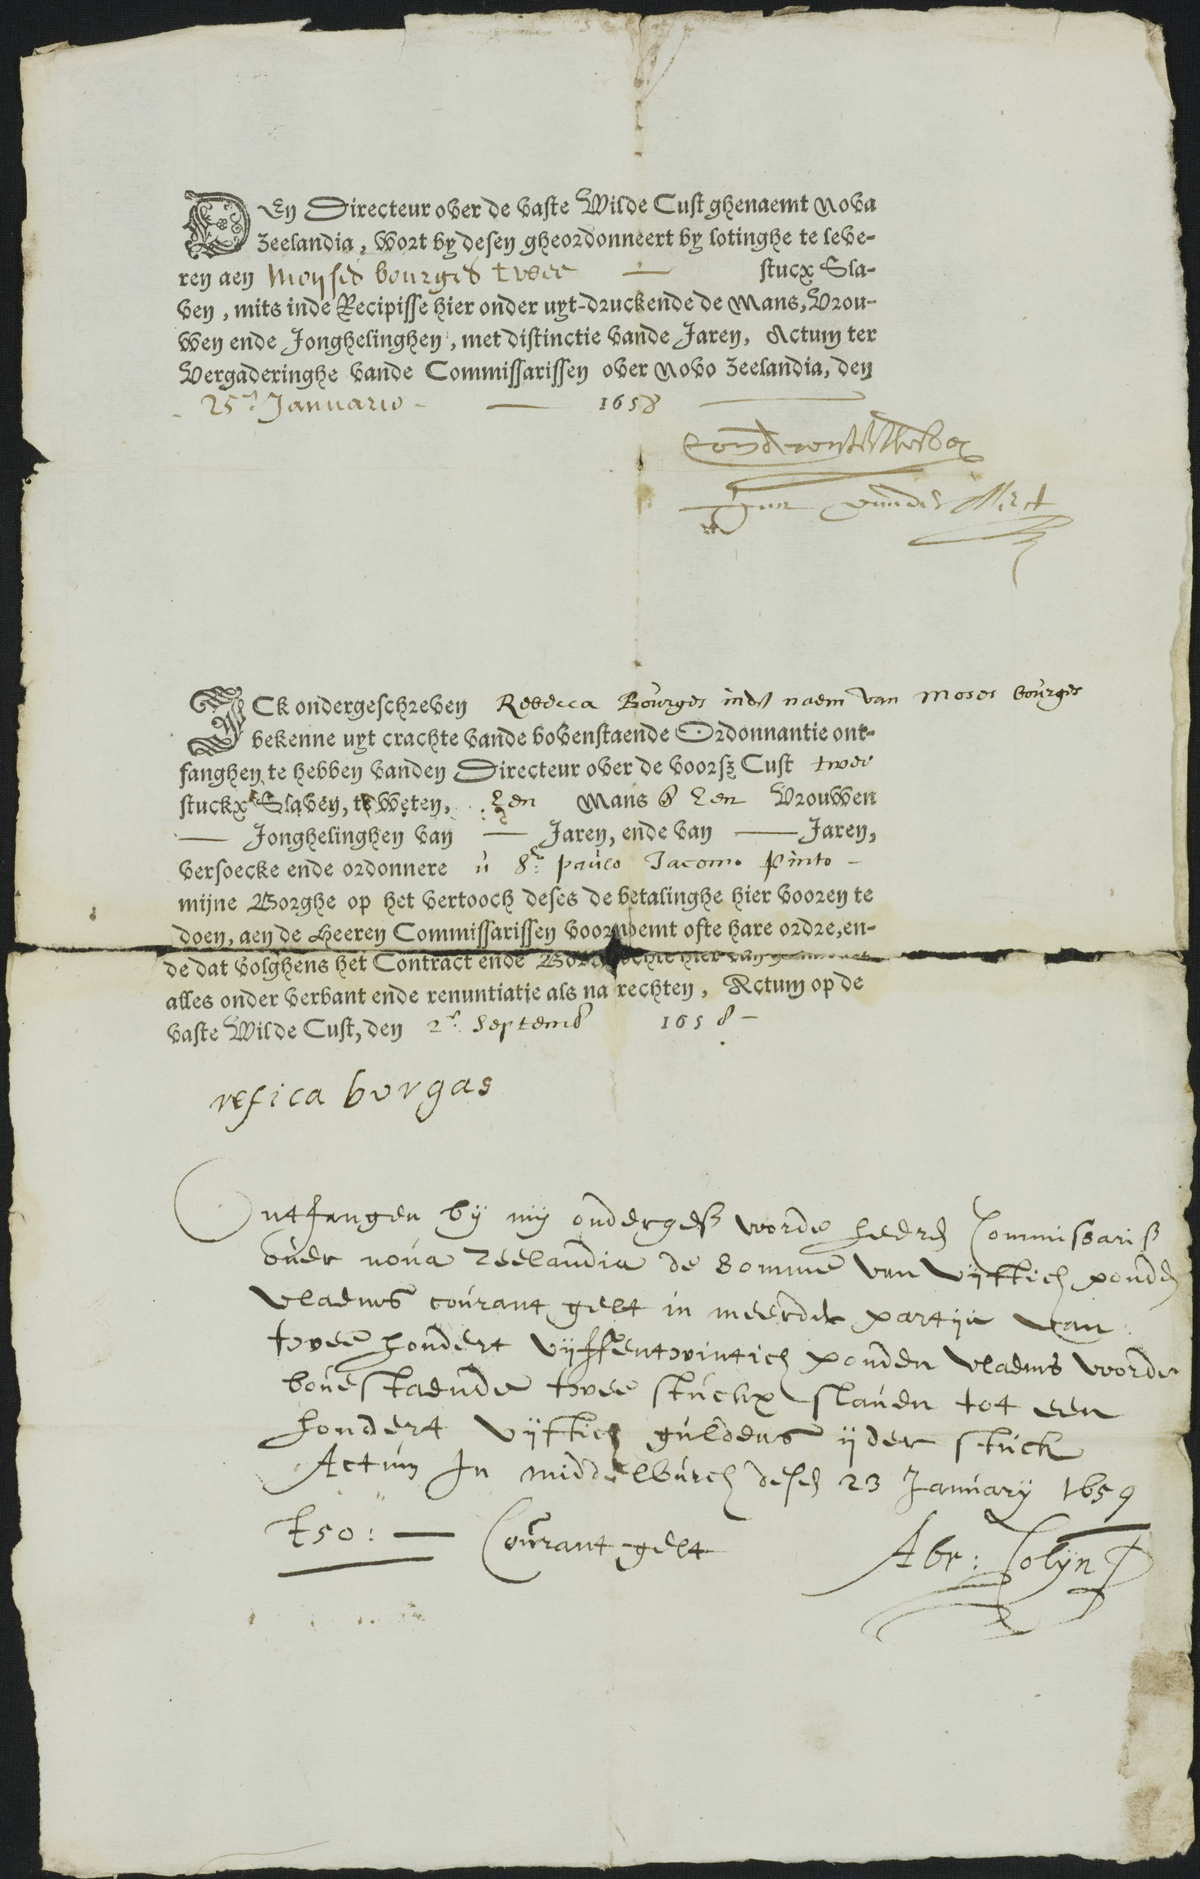 DEn Directeur over de vaste Wilde Cust ghenaemt Nova
Zeelandia, wort by desen gheordonneert by lotinghe te leve-
ren aen Moyses bourges twee — stucx Sla-
ven, mits inde Recipisse hier onder uyt-druckende de Mans, Vrou-
wen ende Jonghelinghen, met distinctie vande Jaren, Actum ter
Vergaderinghe vande Commissarissen over Novo Zeelandia, den
25en Januario — 1658
Jan vander Merct
ICk ondergeschreven Rebecca Bourges indst naem van Moses bourges
bekenne uyt crachte vande bovenstaende Ordonnantie ont-
fanghen te hebben vanden Directeur over de voorsz Cust twee
stuckx Slaven, te weten, Een Mans & Een Vrouwen
— Jonghelinghen van — Jaren, ende van — Jaren,
versoecke ende ordonnere u Sr paulo Jacomo Pinto —
mijne Borghe op het vertooch deses de betalinghe hier vooren te
doen, aen de Heeren Commissarissen voornoemt ofte hare ordre, en-
de dat volghens het Contract ende hier van
alles onder verbant ende renuntiatie als na rechten, Actum op de
vaste Wilde Cust, den 2en Septemb 1658 —
resica borgas
Ontfangen bij mij ondergeß voorde heeren Commissariß
over nova Zeelandia de Somme van vijftich ponden
vlaems courant gelt in meerder partije van
twee hondert vijffentwintich ponden vlaems voorde
bovestaende twee stuckx slaven tot een
hondert vijftich guldens ijder stuck
Actum In middelburch desen 23 January 1659
£50: — Courant gelt
Abr: Colijn